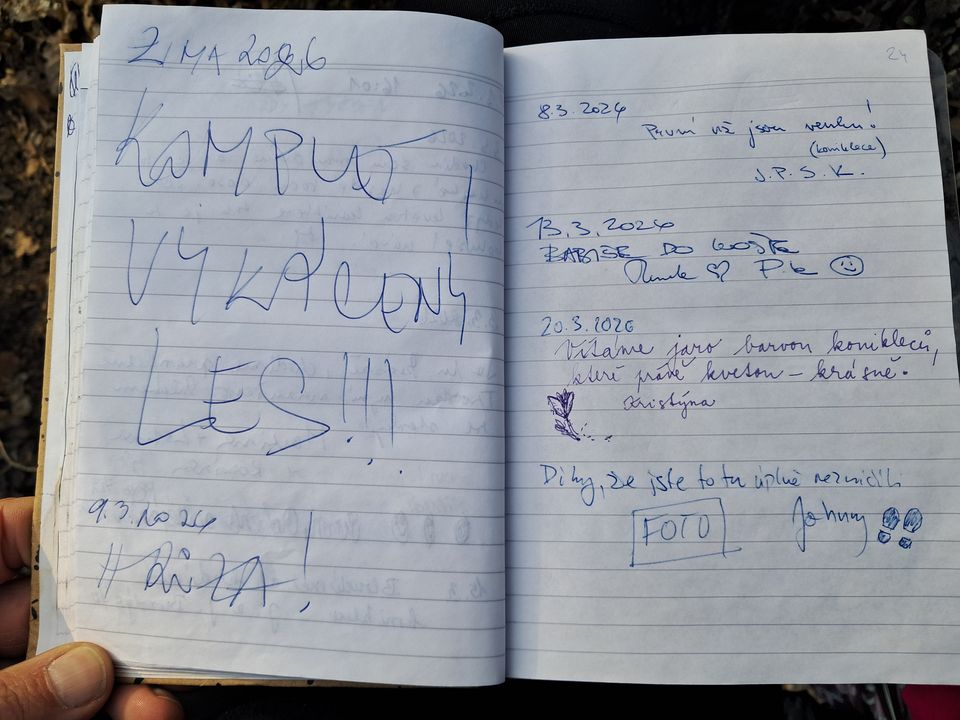 ZIMA 2026
KOMPLET
VYKÁCENÝ
LES!!!
9.3.2026
HRŮZA!
24
8.3.2026
První už jsou venku!
(koniklece)
J.P.S.K.
13.3.2026
BABIŠE DO KOŠE
20.3.2026
Vítáme jaro barvou konikleců,
které právě kvetou – krásně.
Kristýna
Díky, že jste to tu úplně nezničili
FOTO
Johnny